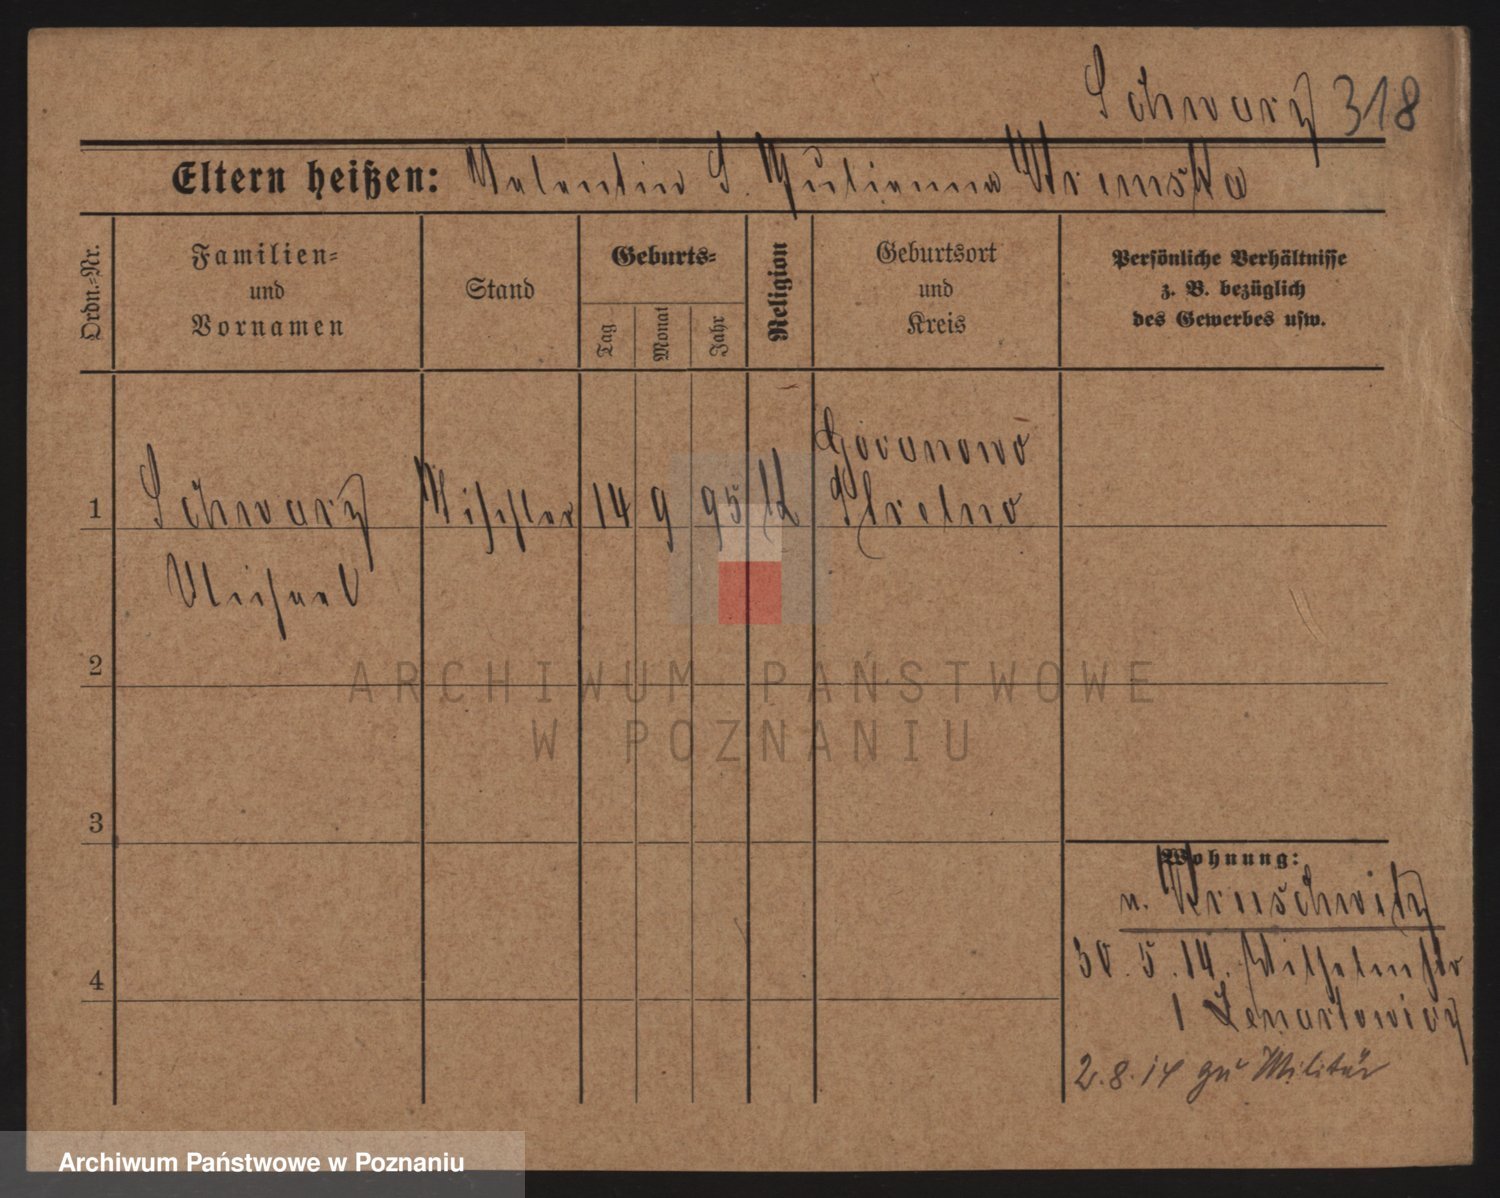 Schwarz 318
Eltern heißen: Valentin S. Julianna
Ordn.=Nr.
Familien=
und
Vornamen
Stand
Geburts=
Tag
Monat
Jahr
Religion
Geburtsort
und
Kreis
Persönliche Verhältnisse
z. B. bezüglich
des Gewerbes usw.
1
Schwarz
Michael
Tischler
14
9
95
k
Goranowo
Strelno
2
3
4
Wohnung:
n. Kruschwitz
30. 5. 14. Wilhelmstr
1 Lenartowicz
2.8.14 zu Militär
ARCHIWUM PAŃSTWOWE
W POZNANIU
Archiwum Państwowe w Poznaniu